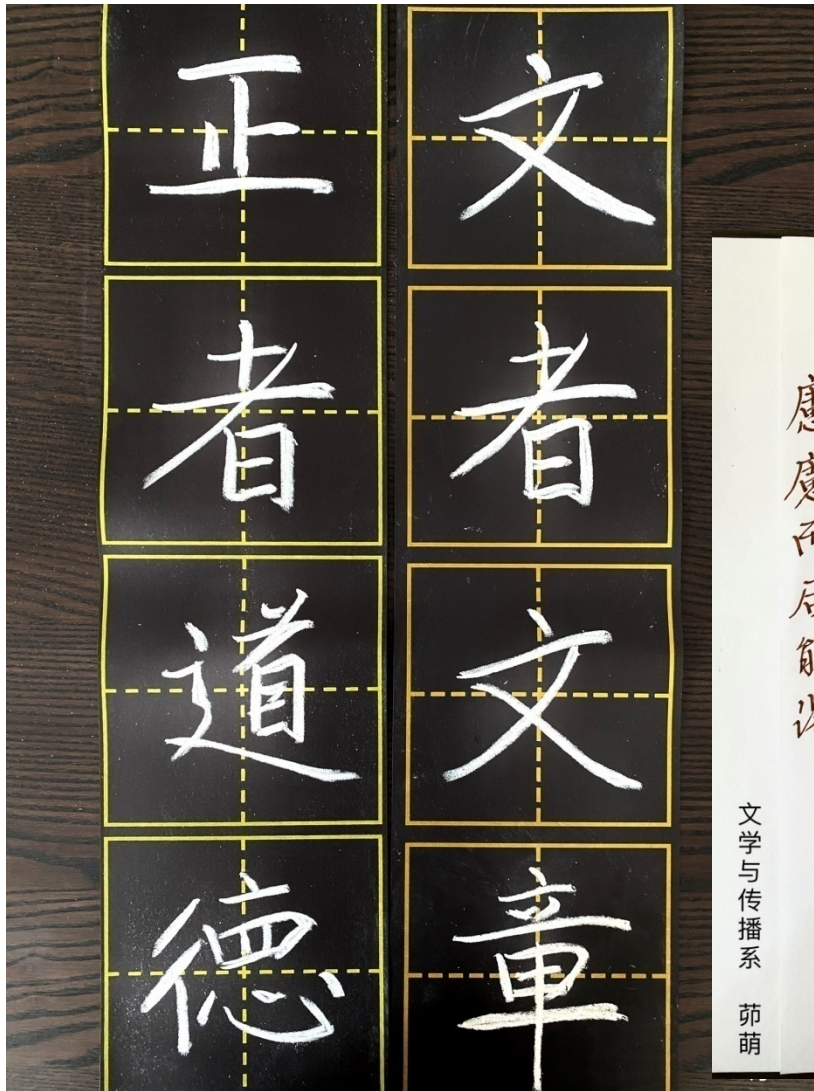 文者文章
正者道德
文学与传播系 茆萌